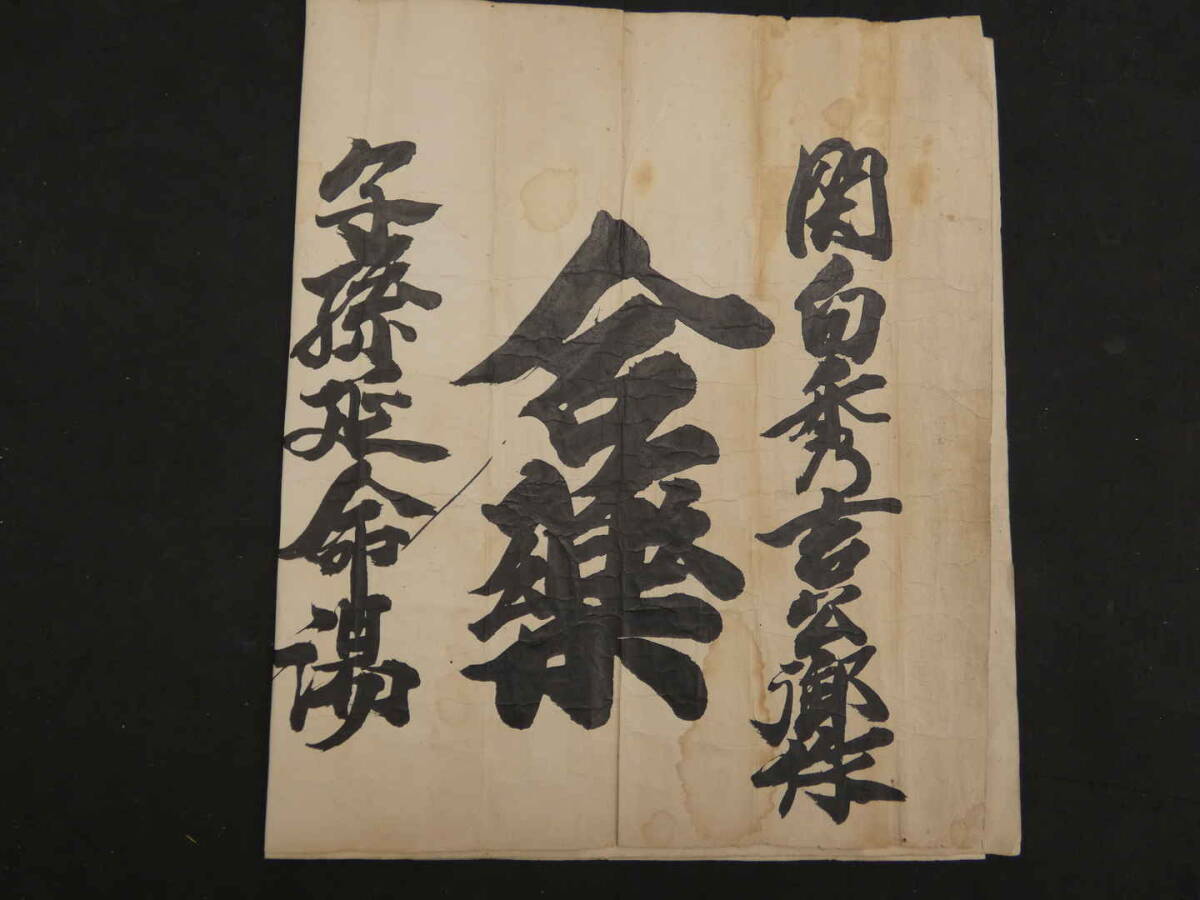 関白秀吉公御作
合薬
子孫延命湯